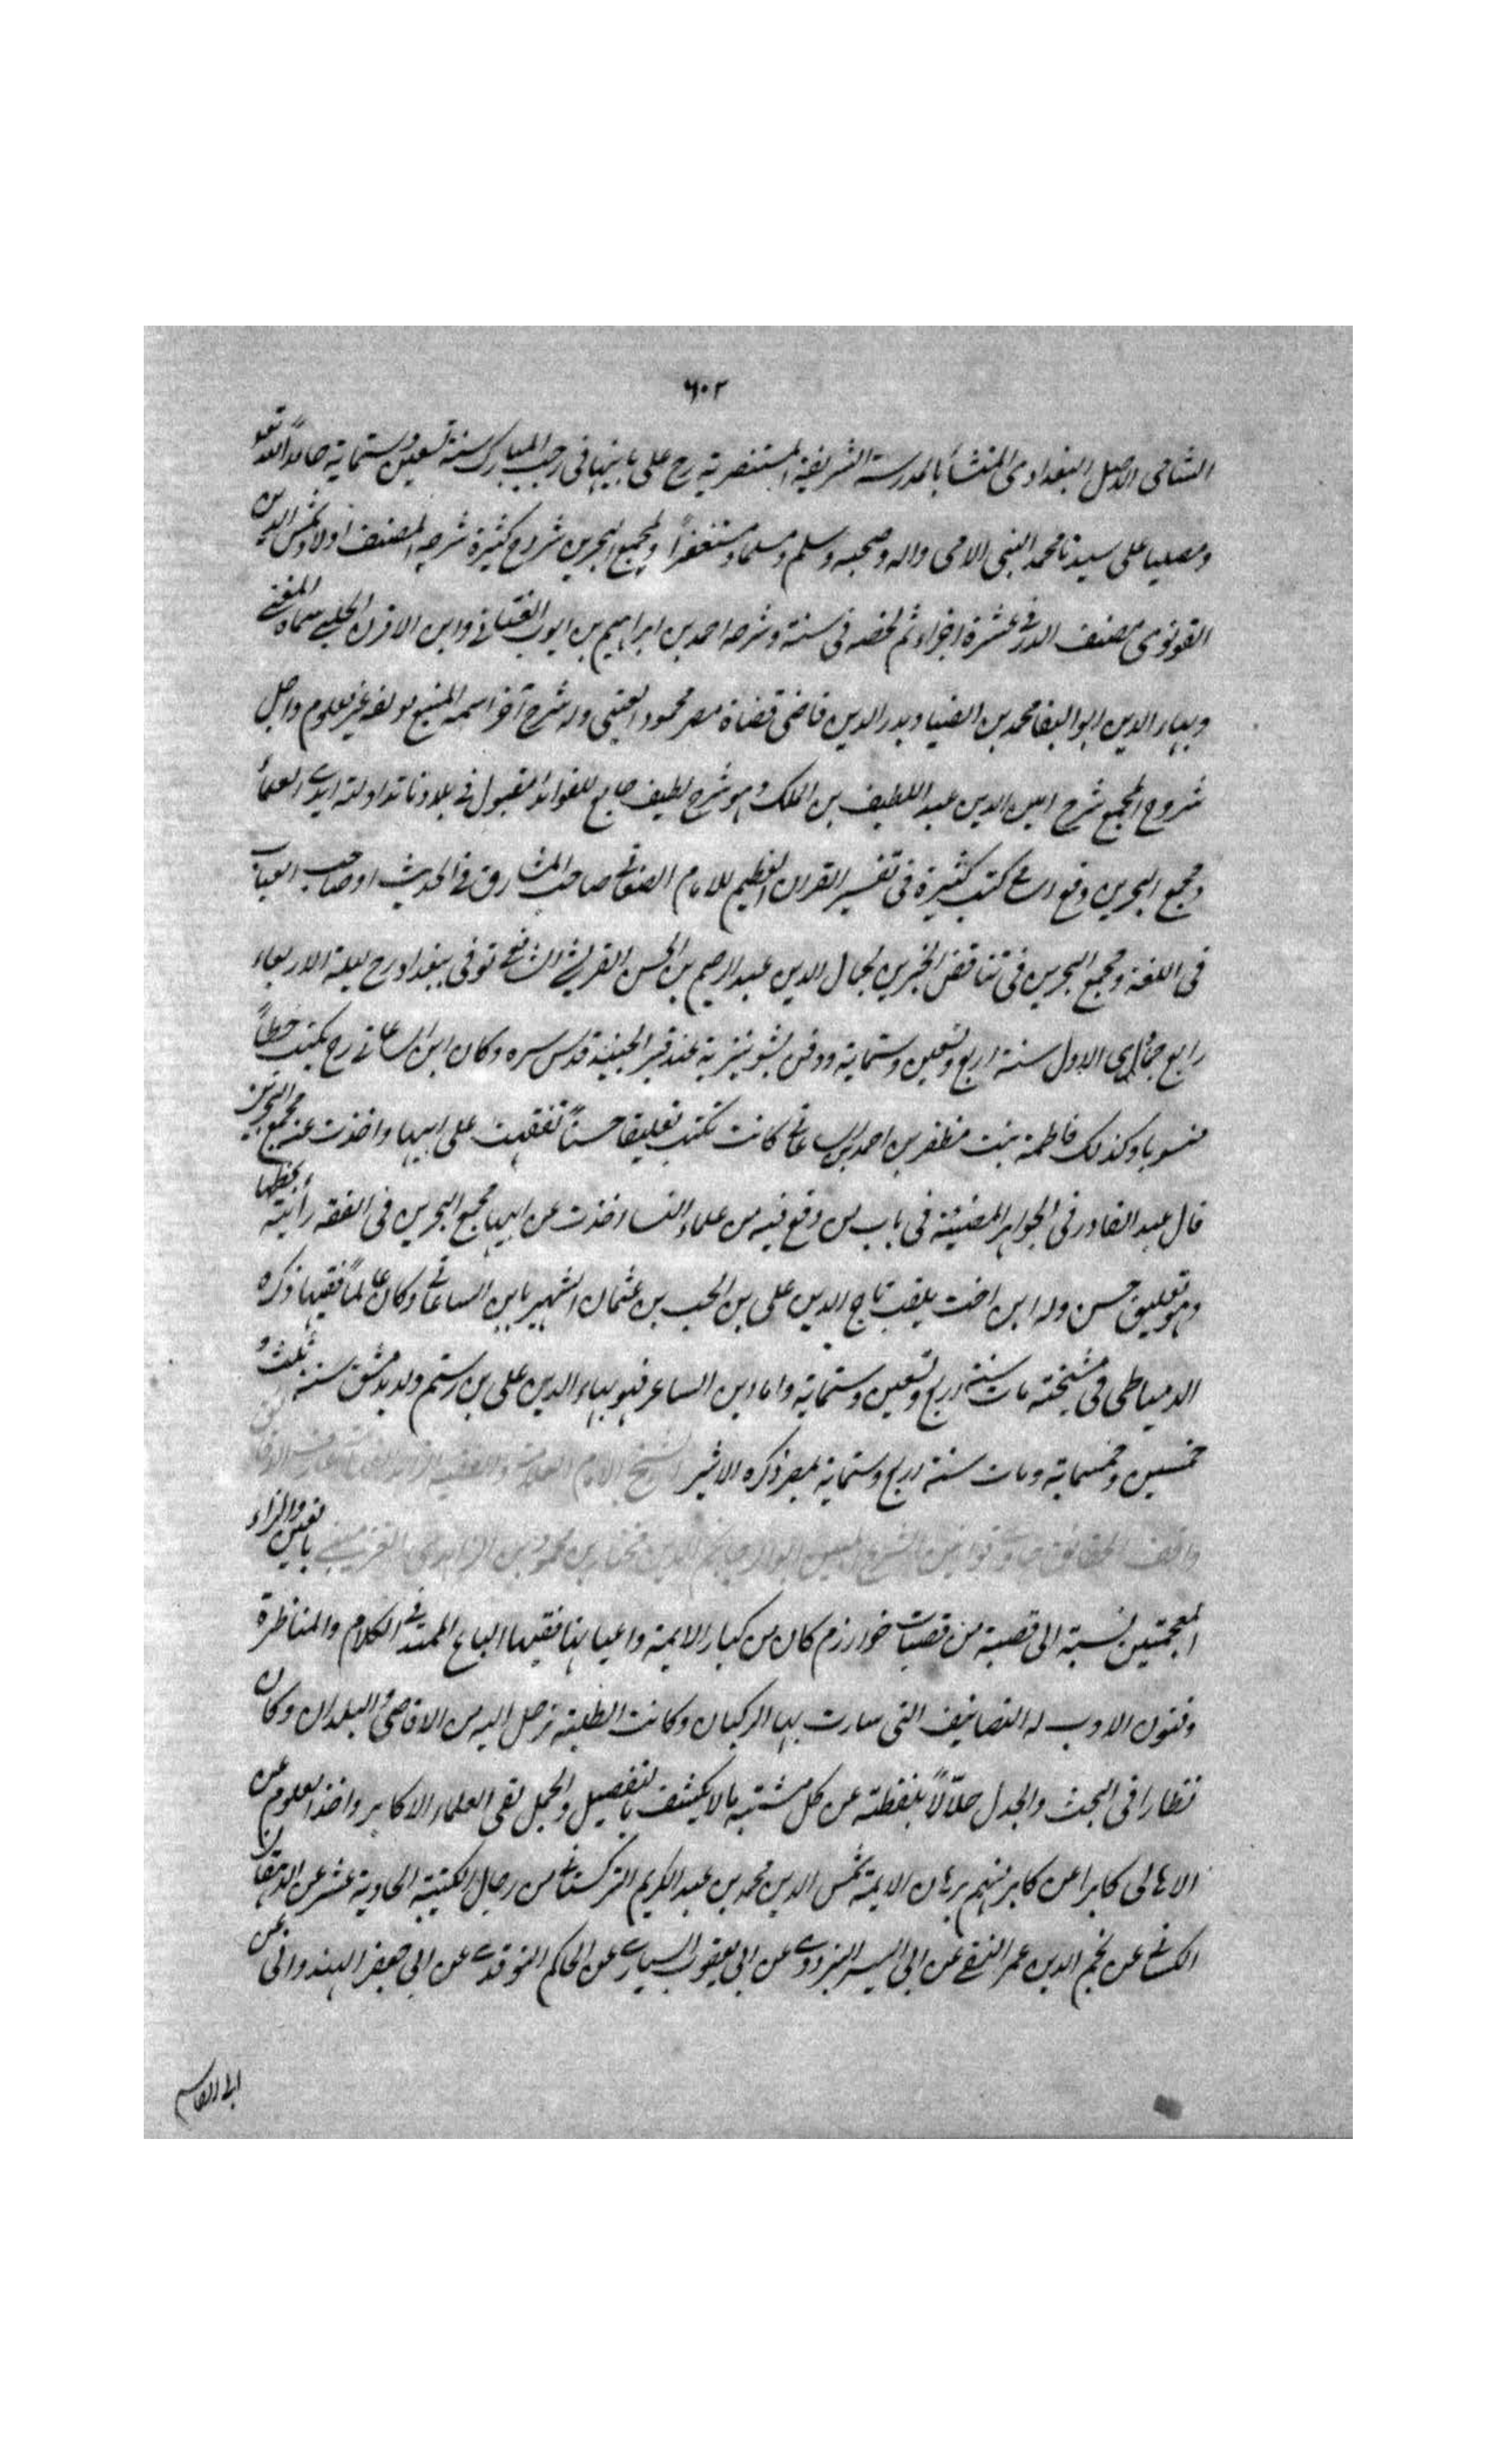 ٦٠٢
الشامى الاصل البغدادى المنشأ بالمدرسة الشريفة المستنصرية رح على بانيها فى رجب المبارك سنة تسعين وستماية حامدا لله تعو
ومصليا على سيدنا محمد النبى الامى واله وصحبه وسلم ومسلما ومستغفرا ولمجمع البحرين شروح كثيرة شرحه المصنف اولا وشمس الدين
القونوى مصنف الدرر فى عشرة اجزاء ثم لخصه فى ستة وشرحه احمد بن ابراهيم بن ايوب العنتابى وابن الاقرن الحلبى سماه المغنى
وبهاء الدين ابو البقا محمد بن الضيا وبدر الدين قاضى قضاة مصر محمود العينى وله شرح آخر اسمه المنبع مولفه غير معلوم واجل
شروح المجمع شرح امين الدين عبد اللطيف بن الملك وهو شرح لطيف جامع للفوائد مقبول فى بلادنا تداولته ايدى العلماء
ومجمع البحرين وقع اسم كتب كثيرة فى تفسير القران العظيم للامام الصغانى صاحب المشارق فى الحديث وصاحب العباب
فى اللغة ومجمع البحرين فى تناقض الخبرين لجمال الدين عبد الرحيم بن الحسن القرشى الشافعى توفى ببغداد رح ليلة الاربعاء
رابع جمادى الاول سنة اربع وتسعين وستماية ودفن بشونيزية عند قبر الجنيد قدس سره وكان ابن الساعاتى رح يكتب خطا
منسوبا وكذلك فاطمة بنت مظفر بن احمد بن الساعاتى كانت تكتب تعليقا حسنا تفقهت على ابيها واخذت عنه مجمع البحرين
قال عبد القادر فى الجواهر المضيئة فى باب من وقع فيه من علماء النسا اخذت عن ابيها مجمع البحرين فى الفقه رأيته بخطها
وهو تعليق حسن وله ابن اخت يلقب تاج الدين على بن انجب بن عثمان الشهير بابن الساعاتى وكان عالما فقيها ذكره
الدمياطى فى مشيخته مات سنة اربع وتسعين وستماية واما ابن الساعر فهو بهاء الدين على بن رستم ولد بدمشق سنة ثلث و
خمسين وخمسماية ومات سنة اربع وستماية بمصر ذكره الاثير الشيخ الامام العلامة والفقيه
واقف الحقايق حاوى قوانين الشرع المبين ابو الرجا نجم الدين مختار بن محمود بن الزاهدى الغزمينى بالغين والزاء
المعجمتين نسبة الى قصبة من قصبات خوارزم كان من كبار الايمة واعيانها فقيها الباع الممتد فى الكلام والمناظرة
وفنون الادب له التصانيف التى سارت بها الركبان وكانت الطلبة ترحل اليه من الاقاصى والبلدان وكان
نظارا فى البحث والجدل حلالا بلفظه عن كل مشتبه ما لا يكشف بالتفصيل والجمل لقى العلماء الاكابر واخذ العلوم عن
الاهالى كابرا عن كابر منهم برهان الايمة شمس الدين محمد بن عبد الكريم التركستانى من رجال الكتيبة الحادية عشر عن الدهقان
الكاسانى عن نجم الدين عمر النسفى عن ابى اليسر البزدوى عن ابى يعقوب السيارى عن الحاكم النوقدى عن ابى جعفر الهندوانى عن
ابى القاسم